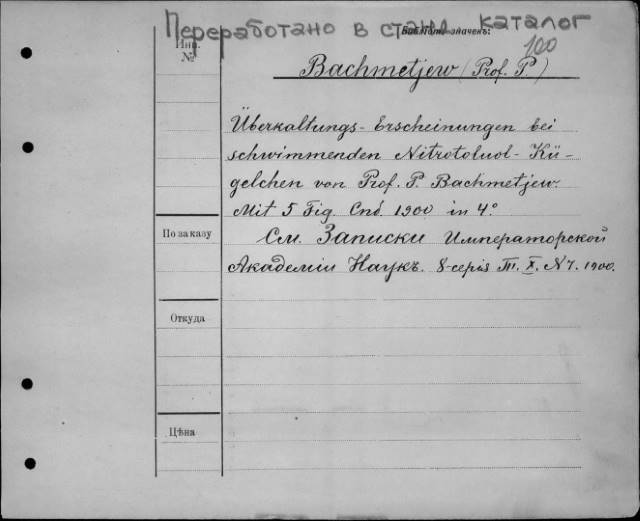 Переработано в станд. каталог
Библіот. значекъ:
Инв.
№
100
Bachmetjew (Prof. P.)
Überkaltungs-Erscheinungen bei
schwimmenden Nitrotoluol-Kü-
gelchen von Prof. P. Bachmetjew.
Mit 5 Fig. Спб. 1900 in 4°.
По заказу
См. Записки Императорской
Академіи Наукъ. 8-серія Т. X. N 7. 1900.
Откуда
Цѣна